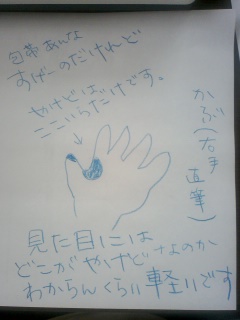 包帯あんな
すげーのだけれど
やけどは
ここいらだけです。
かるぶ(右手
直筆)
見た目には
どこがやけど
さよのか
わからんくらい軽いです